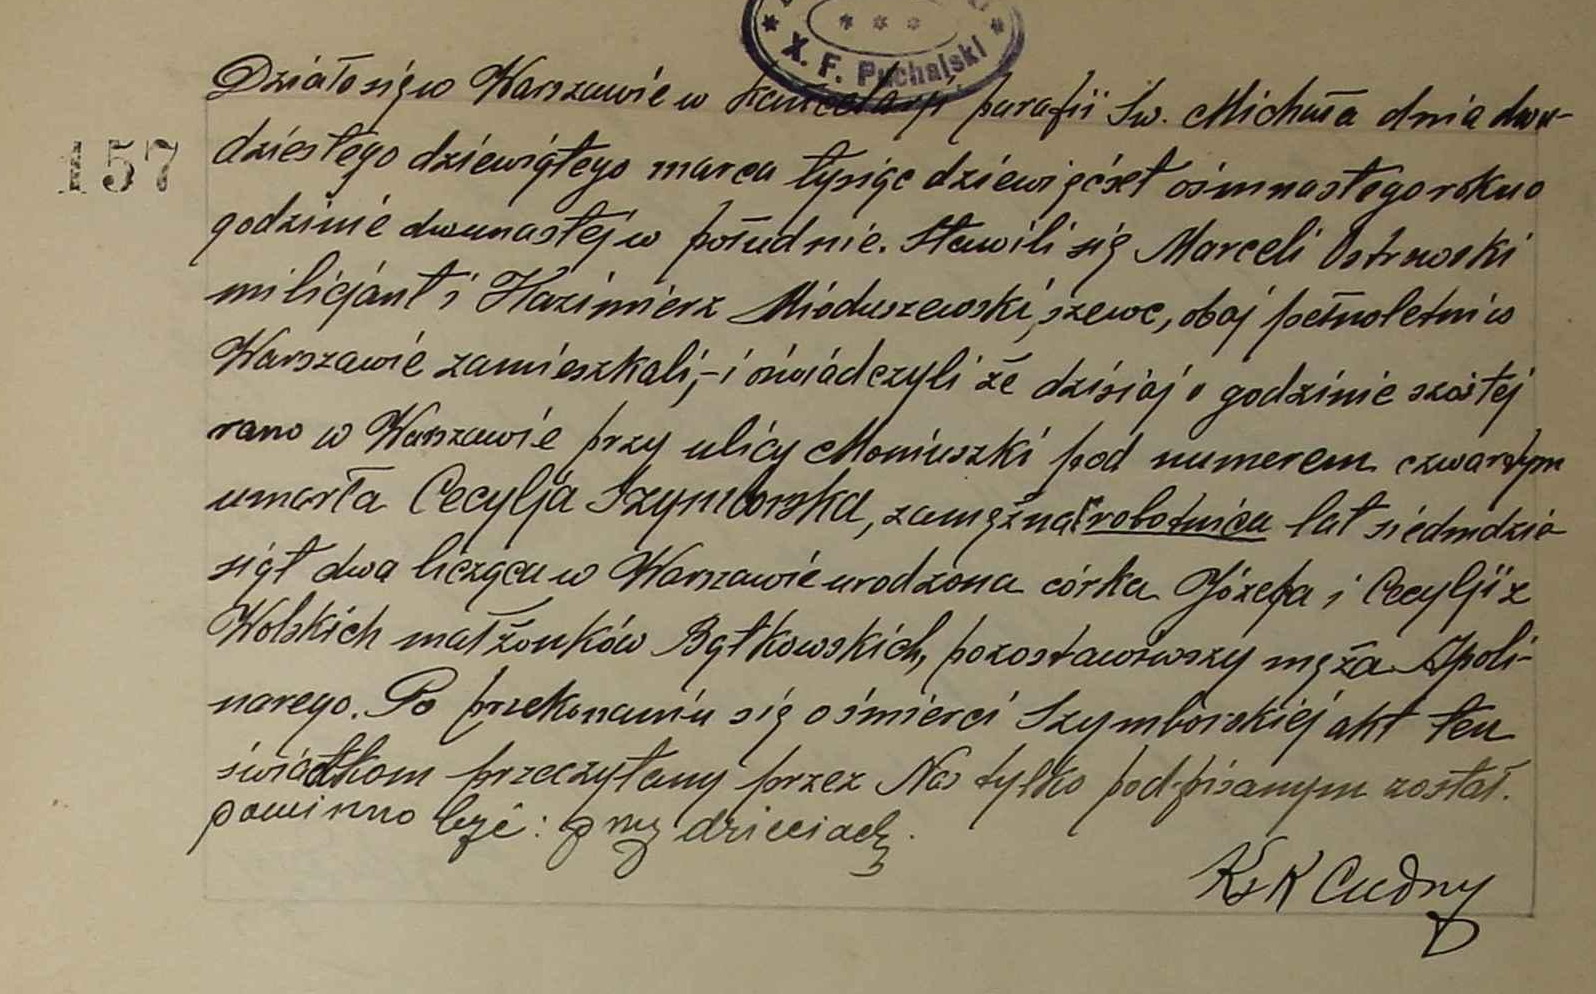 * * * * *
X. F. Puchalski
Działo się w Warszawie w kancelarji parafii Św. Michała dnia dwu-
157
dziestego dziewiątego marca tysiąc dziewięćset ośmnastego roku o
godzinie dwunastej w południe. Stawili się Marceli Ostrowski
milicjant i Kazimierz Mioduszewski, szewc, obaj pełnoletni w
Warszawie zamieszkali,- i oświadczyli że dzisiaj o godzinie szóstej
rano w Warszawie przy ulicy Moniuszki pod numerem czwartym
umarła Cecylja Szymborska, zamężna robotnica lat siedmdzie-
siąt dwa licząca w Warszawie urodzona córka Józefa i Cecylji z
Wolskich małżonków Bątkowskich, pozostawiwszy męża Apoli-
narego. Po przekonaniu się o śmierci Szymborskiej akt ten
świadkom przeczytany przez Nas tylko podpisanym został.
powinno być: przy dzieciach.
Ks K Cudny